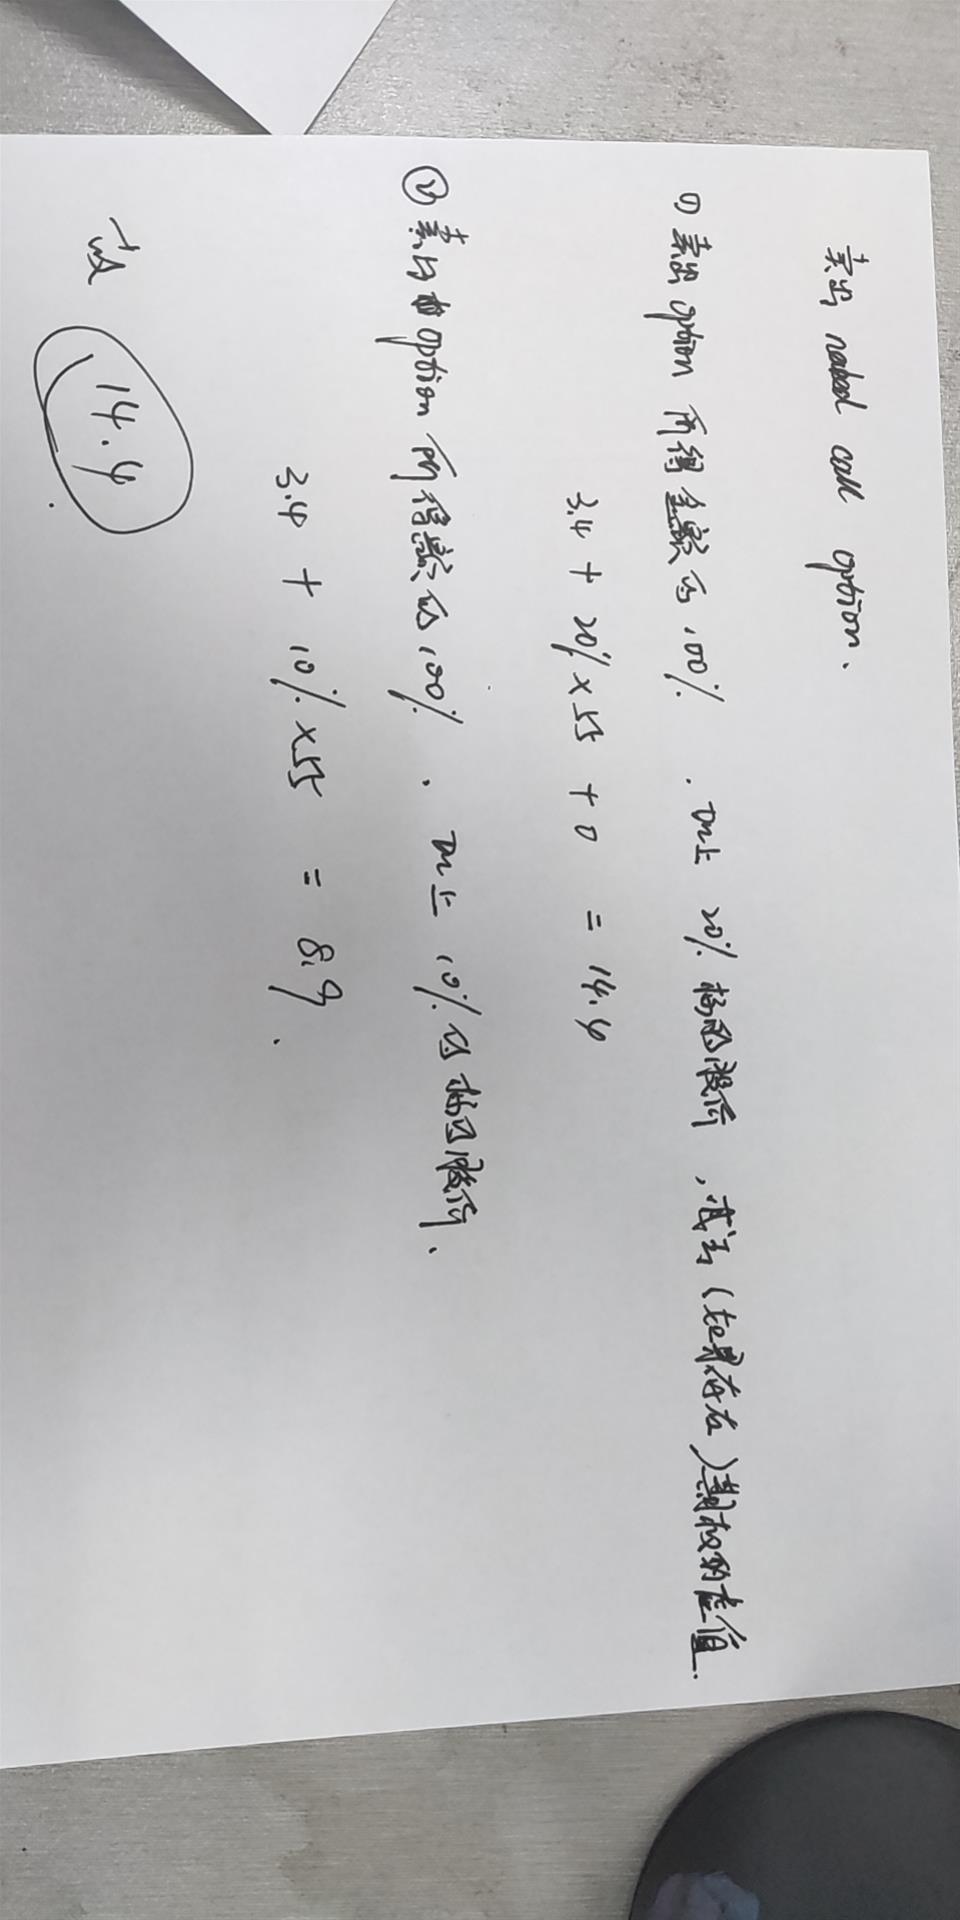 卖出 naked call option.
① 卖出 option 所得金额的 100%. 加上 20% 标的股价, 减去 (如果存在) 期权的虚值.
3.4 + 20% × 55 + 0 = 14.4
② 卖出 option 所得额的 100%. 加上 10% 的标的股价.
3.4 + 10% × 55 = 8.9.
故 14.4.